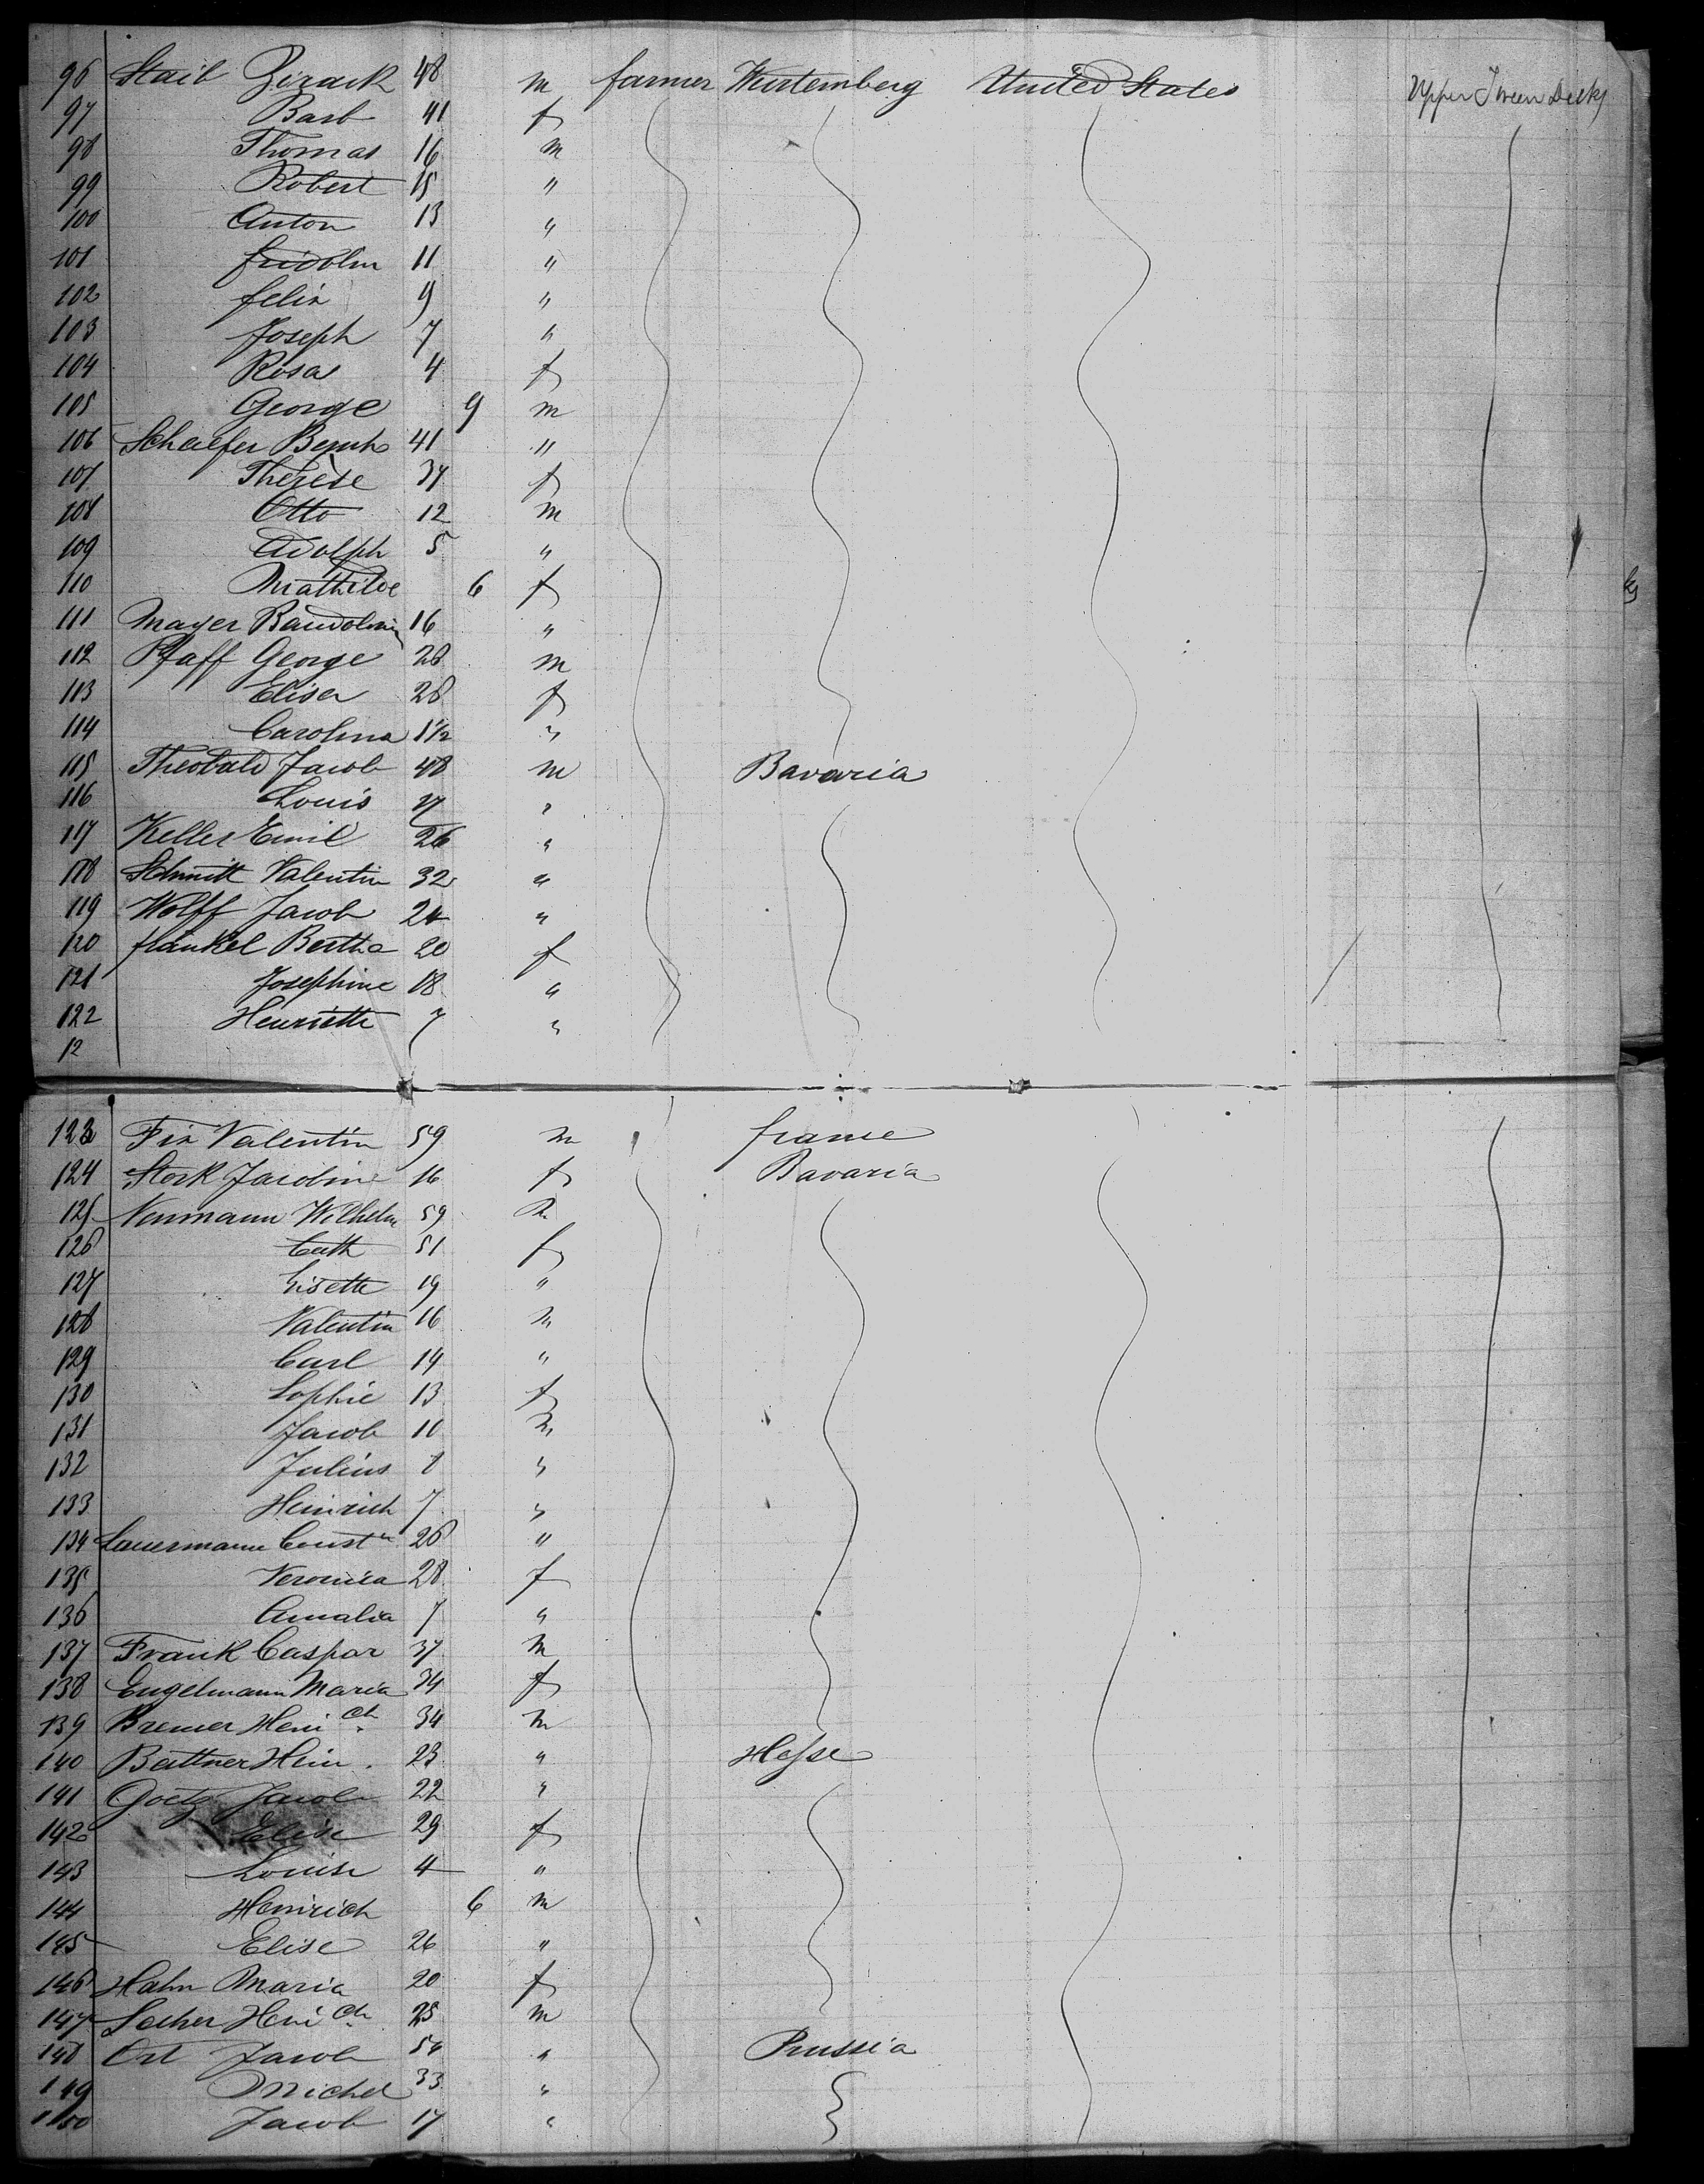 96 Stail Zirack 48 m farmer Wurtemberg United States Upper Tween Decks
97 Barb 41 f
98 Thomas 16 m
99 Robert 15 "
100 Anton 13 "
101 fridolin 11 "
102 felix 9 "
103 Joseph 7 "
104 Rosa 4 f
105 George 9 m
106 Schaefer Bernh 41 "
107 Therese 37 f
108 Otto 12 m
109 Adolph 5 "
110 Mathilde 6 f
111 Mayer 16 "
112 Pfaff George 28 m
113 Elisa 28 f
114 Carolina 1 1/2 "
115 Theobald Jacob 48 m Bavaria
116 Louis 17 "
117 Keller Emil 26 "
118 Schmitt Valentin 32 "
119 Wolff Jacob 24 "
120 Bertha 20 f
121 Josephine 18 "
122 Henriette 7 "
12
123 Fix Valentin 59 m france
124 Stork Jacobine 16 f Bavaria
125 Neumann Wilhelm 59 m
126 Cath 51 f
127 Lisette 19 "
128 Valentin 16 m
129 Carl 14 "
130 Sophie 13 f
131 Jacob 10 m
132 Julius 8 "
133 Heinrich 7 "
134 Lauermann Const n 26 "
135 Veronica 28 f
136 Amalia 7 "
137 Frank Caspar 37 m
138 Engelmann Maria 34 f
139 Bremer Hein ch 34 m
140 Hein. 23 " Hesse
141 Goetz Jacob 22 "
142 Elise 29 f
143 Louise 4 "
144 Heinrich 6 m
145 Elise 26 "
146 Hahn Maria 20 f
147 Hein ch 25 m
148 Ort Jacob 54 " Prussia
149 Michel 33 "
150 Jacob 17 "